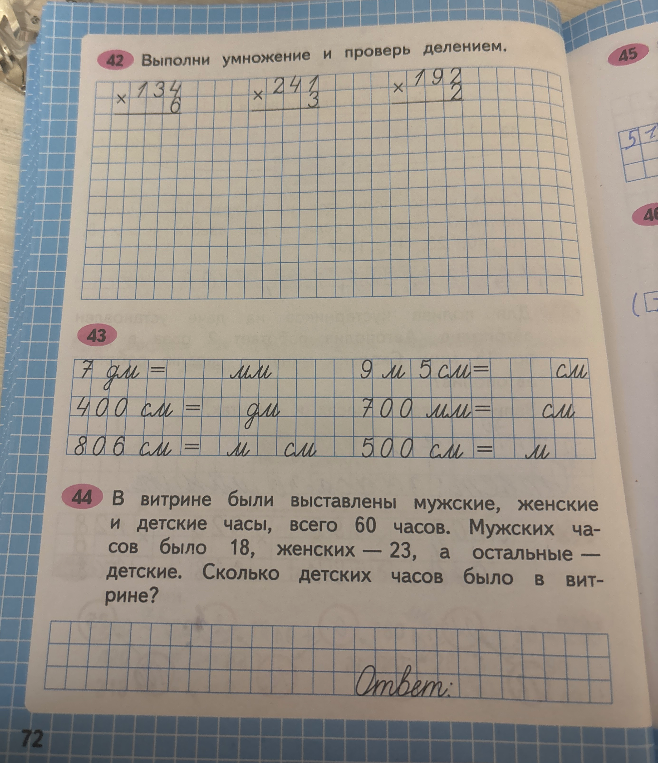 42 Выполни умножение и проверь делением.
× 134 × 241 × 192
6 3 2
43
7 дм = мм 9 м 5 см = см
400 см = дм 700 мм = см
806 см = м см 500 см = м
44 В витрине были выставлены мужские, женские
и детские часы, всего 60 часов. Мужских ча-
сов было 18, женских — 23, а остальные —
детские. Сколько детских часов было в вит-
рине?
Ответ:
72
45